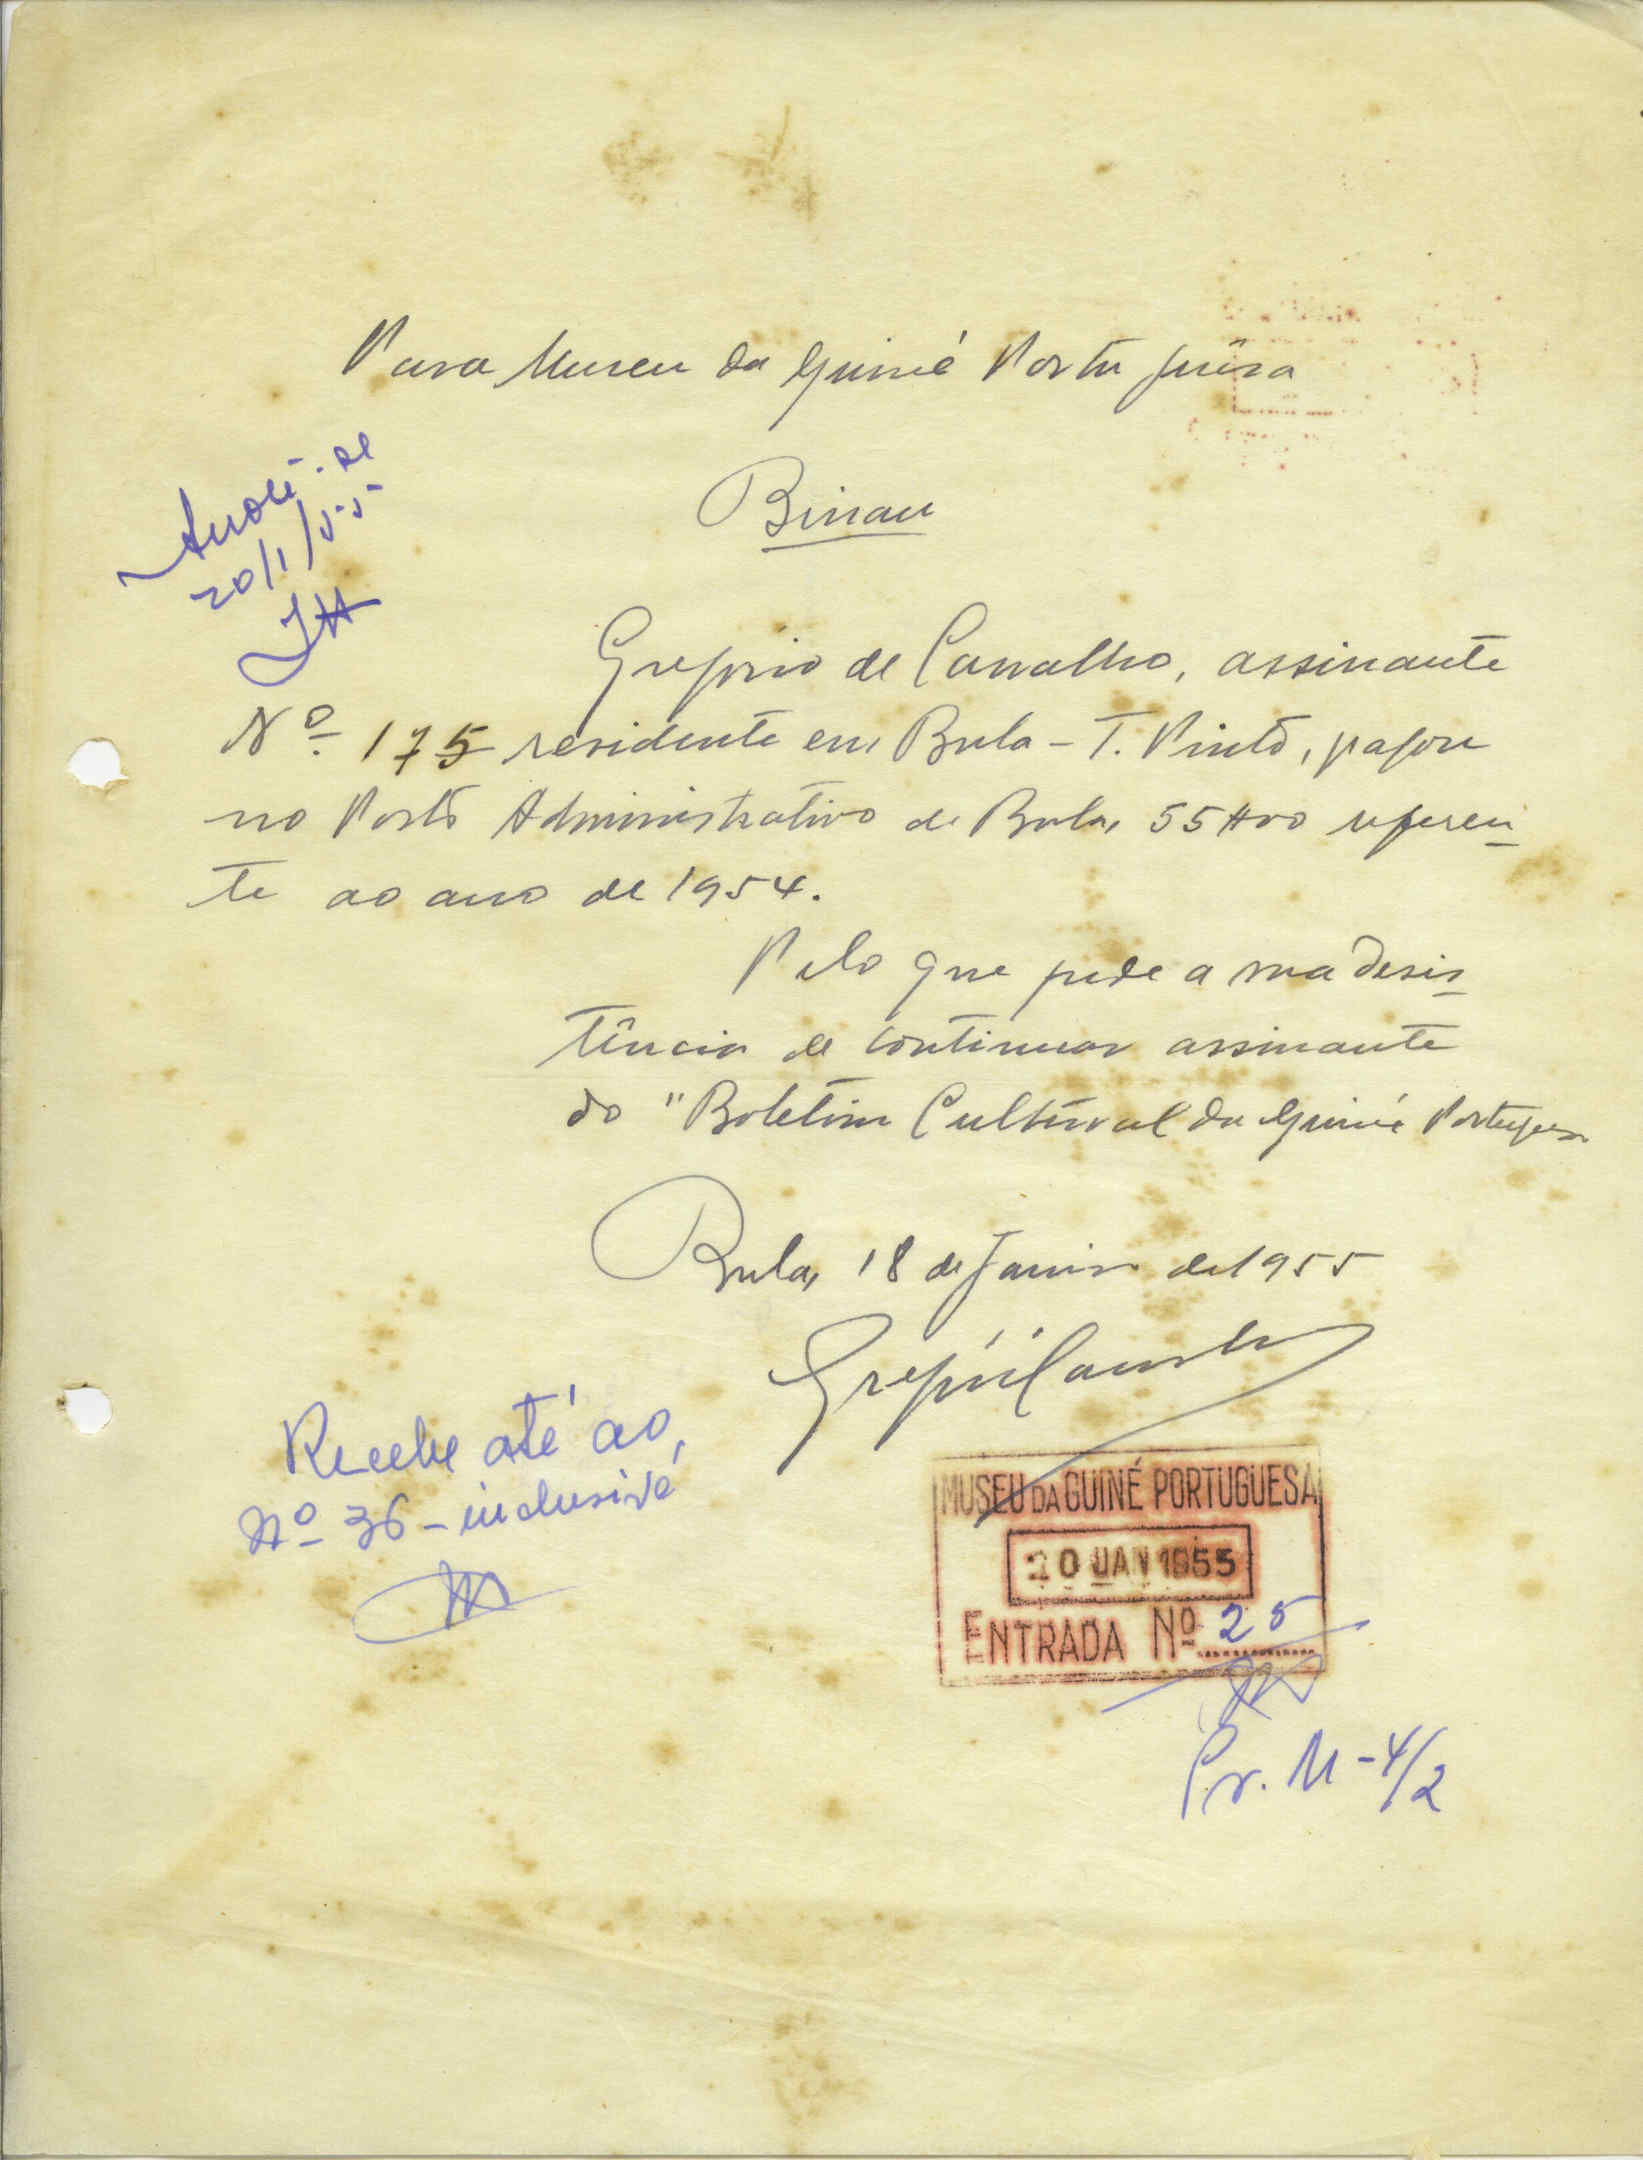 Para Museu da Guiné Portuguêsa
Bissau
Anote-se
20/1/55
Gregorio de Carvalho, assinante
Nº 175 residente em Bula – T. Pinto, pagou
no Posto Administrativo de Bula, 55$00 referen-
te ao ano de 1954.
Pelo que pede a sua desis-
tência de continuar assinante
do "Boletim Cultural da Guiné Portuguesa
Bula, 18 de Janeiro de 1955
Recebe até ao,
Nº 36 – inclusivé
MUSEU DA GUINÉ PORTUGUESA
20 JAN 1955
ENTRADA Nº 25
Pr. M-4/2